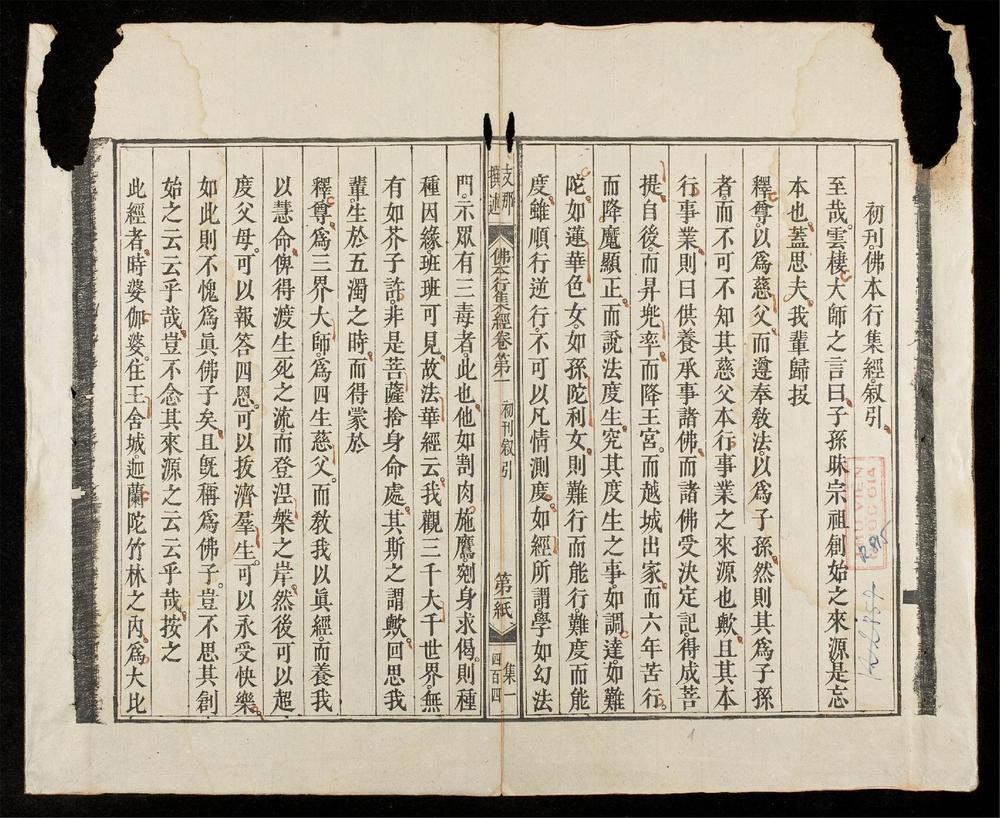 初刊佛本行集經敘引
至哉。雲棲大師之言曰。子孫昧宗祖創始之來源。是忘
本也。蓋思夫。我輩歸投
釋尊。以爲慈父。而遵奉敎法。以爲子孫。然則其爲子孫
者。而不可不知其慈父本行事業之來源也歟。且其本
行事業。則曰供養承事諸佛。而諸佛受決定記。得成菩
提。自後。而昇兜率。而降王宮。而越城出家。而六年苦行。
而降魔顯正。而說法度生。究其度生之事。如調達。如難
陀。如蓮華色女。如孫陀利女。則難行而能行。難度而能
度。雖順行逆行。不可以凡情測度。如經所謂。學如幻法
支那撰述
佛本行集經卷第一 初刊敘引 第一紙 集一 四百四
門。示眾有三毒者。此也。他如割肉。施鷹。剜身求偈。則種
種因緣。班班可見。故法華經云。我觀三千大千世界。無
有如芥子許。非是菩薩捨身命處。其斯之謂歟。回思我
輩。生於五濁之時。而得蒙於
釋尊。爲三界大師。爲四生慈父。而敎我以眞經。而養我
以慧命。俾得渡生死之流。而登涅槃之岸。然後可以超
度父母。可以報答四恩。可以拔濟羣生。可以永受快樂。
如此則不愧爲眞佛子矣。且旣稱爲佛子。豈不思其創
始之云云乎哉。豈不念其來源之云云乎哉。按之
此經者。時婆伽婆。住王舍城。迦蘭陀竹林之內。爲大比
THU VIEN
QUOC GIA
R.895
1